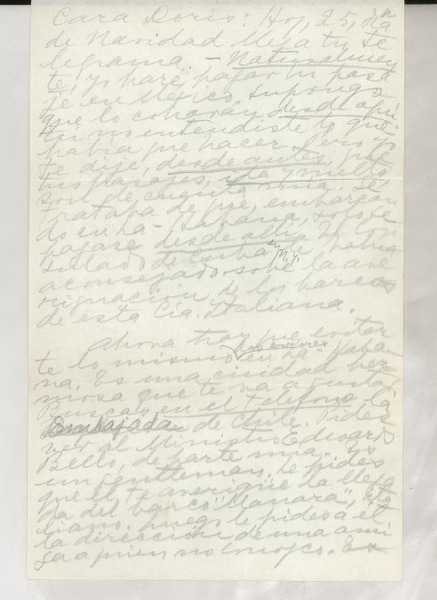 Cara Doris: Hoy, 25, día
de Navidad llega tu te
legrama. - Naturalmen
te, yo haré pagar tu pasa
je en México. Supongo
que lo cobrarán desde aquí.
Tú no entendiste lo que
había que hacer. Pero yo
te dije, desde antes, que
tus pasajes, ida y vuelta,
son de cuenta mía. Se
trataba de que, embarcan
do en La Habana, solo se
pagase desde allí. El Con
sulado de Cuba en N.Y. había
aconsejado sobre la ave
riguación de los barcos
de esta Cía. Italiana.
Ahora hay que evitar
te lo mismo en La Haba
na. Es una ciudad her
mosa que te va a gustar.
Buscas, en el teléfono, la
Embajada de Chile. Pides
ver al Ministro Eduardo
Bello, de parte mía. Es
un gentleman. Le pides
que él te averigüe la llega
da del barco ita
liano. Luego le pides a él
la dirección de una ami
ga a quien no conozco. Es